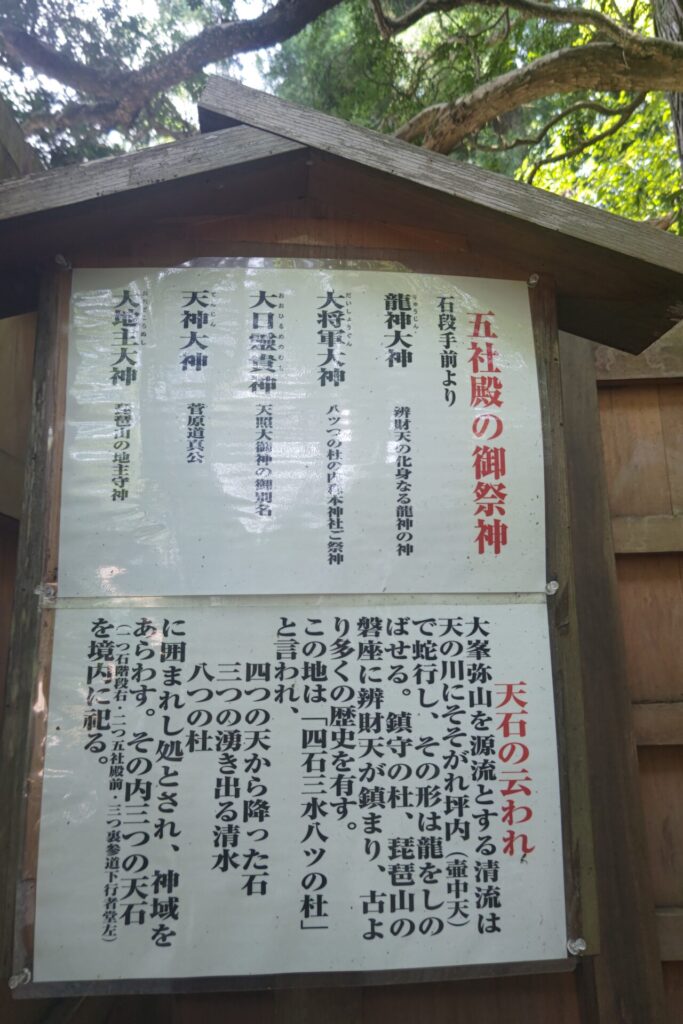 五社殿の御祭神
石段手前より
龍神大神 辨財天の化身なる龍神の神
大将軍大神 八ツつの杜の内森本神社ご祭神
大日孁貴神 天照大御神の御別名
天神大神 菅原道真公
大地主大神 琵琶山の地主守神
天石の云われ
大峯弥山を源流とする清流は
天の川にそそがれ坪内（壷中天）
で蛇行し、その形は龍をしの
ばせる。鎮守の杜、琵琶山の
磐座に辨財天が鎮まり、古よ
り多くの歴史を有す。
この地は「四石三水八ツの杜」
と言われ、
四つの天から降った石
三つの湧き出る清水
八つの杜
に囲まれし処とされ、神域を
あらわす。その内三つの天石
（一つ石階段右・二つ五社殿前・三つ裏参道下行者堂左）
を境内に祀る。